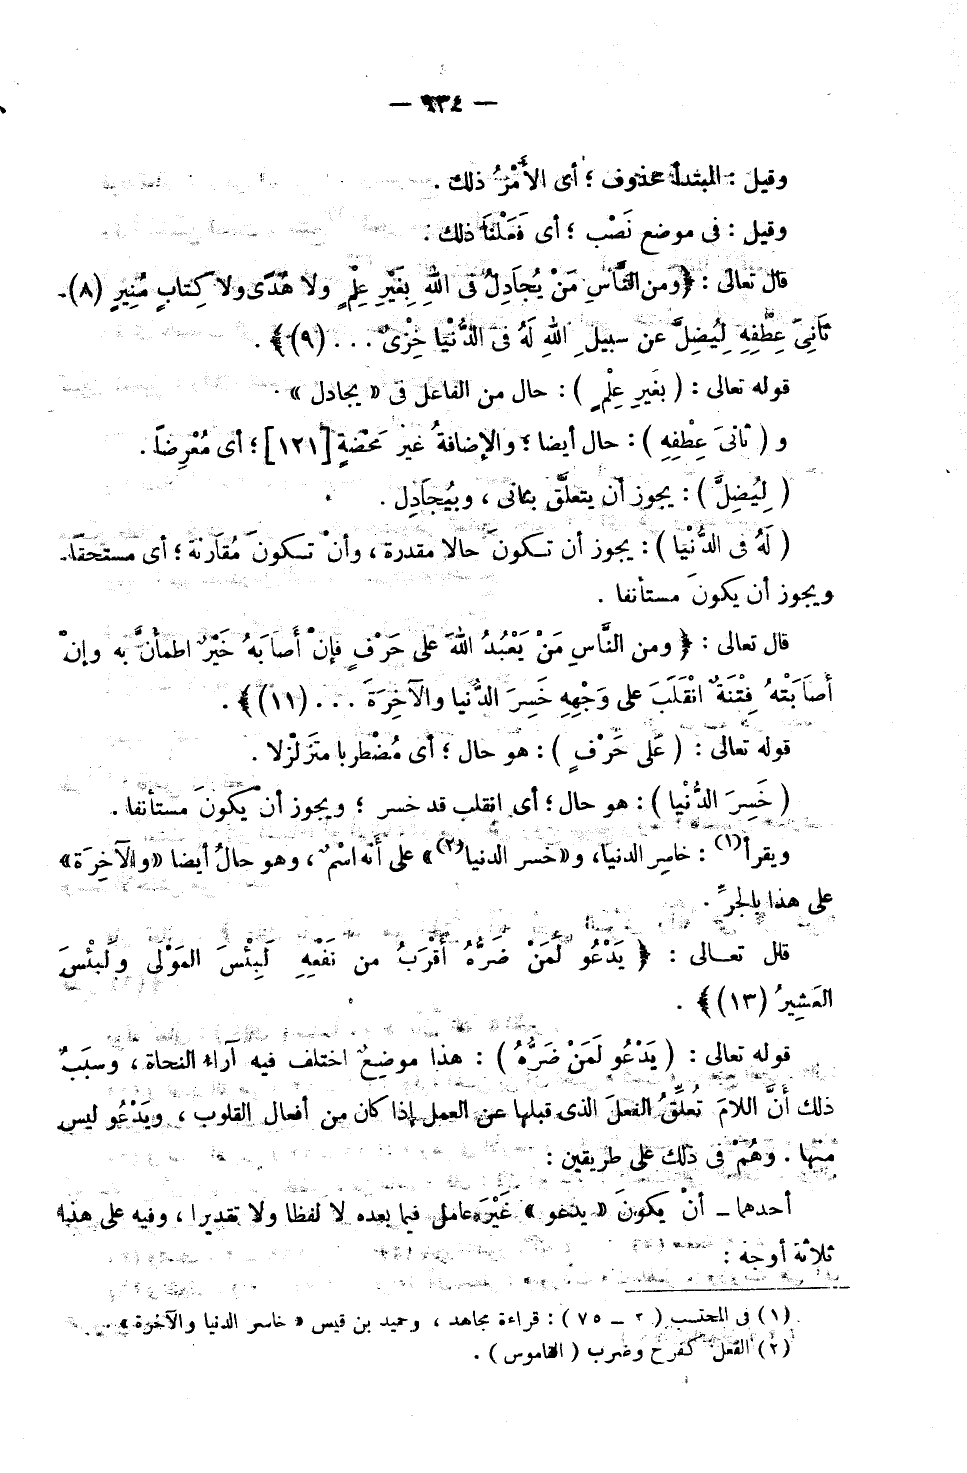 — ٩٣٤ —
وقيل : المبتدأ محذوف ؛ أى الأَمْرُ ذلك .
وقيل : فى موضع نَصْب ؛ أى فَعَلْنَا ذلك .
قال تعالى : ﴿ومن النَّاسِ مَنْ يُجَادِلُ فى اللهِ بِغَيْرِ عِلْمٍ ولا هُدًى ولا كِتابٍ مُنِيرٍ (٨) .
ثَانِىَ عِطْفِهِ لِيُضِلَّ عن سبيلِ اللهِ لَهُ فى الدُّنْيَا خِزْىٌ . . . (٩)﴾ .
قوله تعالى : ( بِغَيرِ عِلْمٍ ) : حال من الفاعل فى « يجادل » .
و ( ثانىَ عِطْفِهِ ) : حال أيضا ؛ والإضافةُ غير مَحْضةٍ [١٢١] ؛ أى مُعْرِضاً .
( لِيُضِلَّ ) : يجوز أن يتعلَّق بثانى ، وبِيُجَادِل .
( لَهُ فى الدُّنْيَا ) : يجوز أن تكونَ حالا مقدرة ، وأنْ تكونَ مُقَارنة ؛ أى مستحقا .
ويجوز أن يكونَ مستأنفا .
قال تعالى : ﴿ ومن النَّاسِ مَنْ يَعْبُدُ اللهَ على حَرْفٍ فإنْ أَصَابَهُ خَيْرٌ اطمأنَّ به وإنْ
أَصَابَتْهُ فِتْنَةٌ انْقَلَبَ على وَجْهِهِ خَسِرَ الدُّنيا والآخِرَةَ . . . (١١)﴾ .
قوله تعالى : ( عَلَى حَرْفٍ ) : هو حال ؛ أى مُضْطربا متزَلْزلا .
( خَسِرَ الدُّنْيا ) : هو حال ؛ أى انقلب قد خسر ؛ ويجوز أن يكونَ مستأنفا .
ويقرأ(١) : خاسِر الدنيا، و«خسر الدنيا(٢)» على أنّه اسْمٌ ، وهو حالٌ أيضا «والآخِرَة»
على هذا بالجرِّ .
قال تعالى : ﴿ يَدْعُو لَمَنْ ضَرُّهُ أَقْرَبُ من نَفْعِهِ لَبِئْسَ المَوْلَى ولَبئْسَ
العَشِيرُ (١٣)﴾ .
قوله تعالى : ( يَدْعُو لَمَنْ ضَرُّهُ ) : هذا موضِعٌ اختلف فيه آراء النحاة ، وسبَبُ
ذلك أَنَّ اللامَ تُعلِّقُ الفعلَ الذى قبلها عن العمل إذا كان من أفعال القلوب ، ويَدْعُو ليس
منها . وهُمْ فى ذلك على طريقين :
أحدهما ــ أنْ يكونَ « يدعو » غَيْرَ عامل فيما بعده لا لفظا ولا تقديرا ، وفيه على هذا
ثلاثة أوجه :
(١) فى المحتسب ( ٢ ــ ٧٥ ) : قراءة مجاهد ، وحميد بن قيس « خاسر الدنيا والآخرة » .
(٢) الفعل كفرح وضرب ( القاموس ) .